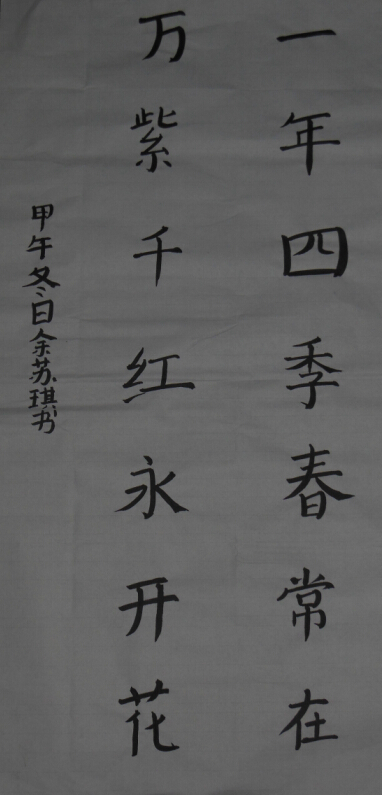 一年四季春常在
万紫千红永开花
甲午冬日余苏琪书